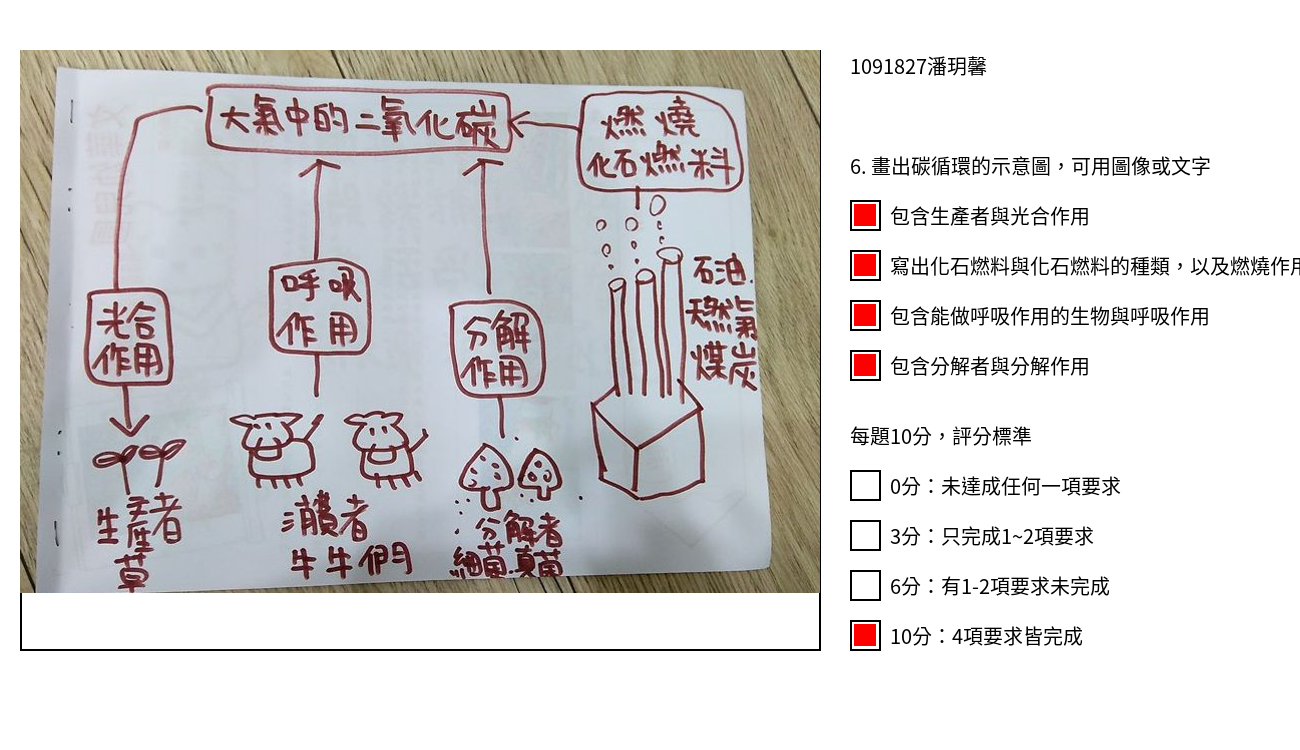 大氣中的二氧化碳
燃燒
化石燃料
石油.
天燃氣
煤炭
光合
作用
呼吸
作用
分解
作用
生產者
草
消費者
牛牛們
分解者
細菌.真菌
1091827潘玥馨
6. 畫出碳循環的示意圖，可用圖像或文字
包含生產者與光合作用
寫出化石燃料與化石燃料的種類，以及燃燒作用
包含能做呼吸作用的生物與呼吸作用
包含分解者與分解作用
每題10分，評分標準
0分：未達成任何一項要求
3分：只完成1~2項要求
6分：有1-2項要求未完成
10分：4項要求皆完成